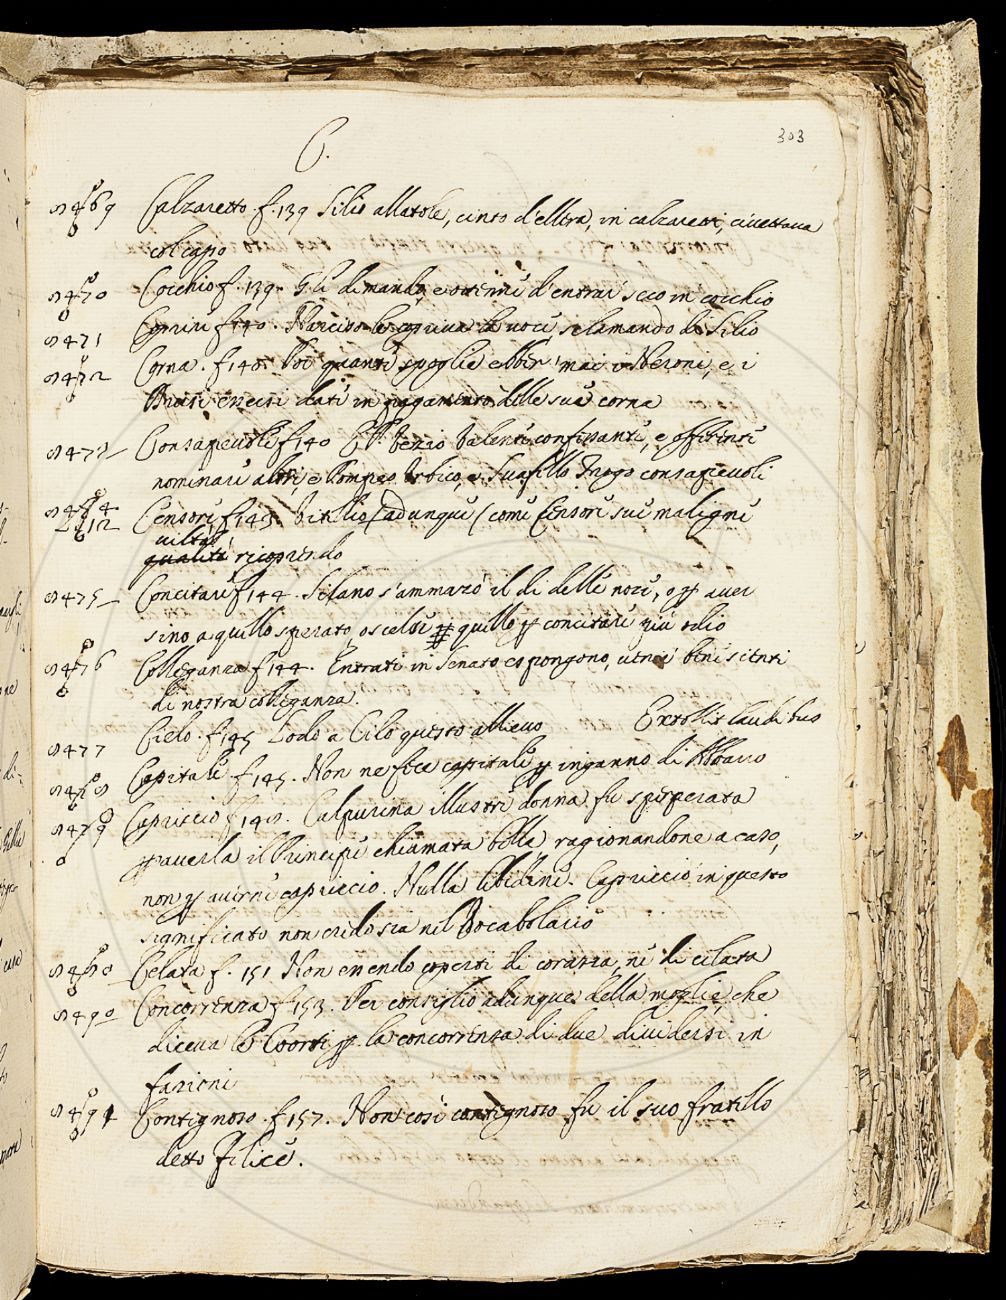 303
C.
469 Calzaretto f. 139 Silio allato le, cinto d'ellera, in calzaretti, civettava
col capo
470 Cocchio f. 139. Gli dimandò, e ottenne d'entrar seco in cocchio
471 Coprire f. 140. Narciso le copriva la voce sclamando di Silio
472 Corna. f. 140. quante spoglie ebber mai i Neroni, e i
Drusi eversi dati in pagamento delle sue corna
473 Consapevoli f. 140 E P. Vezio Valente confessante, e offerente
nominare altri, e Pompeo Urbico, e Suffello Trogo consapevoli
474 Censori, f. 143. Vitellio adunque (come Censore sue maligne
viltà
qualità ricoprendo
475 Concitare f. 144. Silano s'ammazzò il dì delle nozze, o p aver
sino a quello sperato, o scelse p quello p concitare più odio
476 Colleganza f. 144. Entrati in Senato espongono, bene scienti
di nostra colleganza.
477 Cielo. f. 145 Lodò a Cielo questo allievo Extollit laudibus
478 Capitale f. 145. Non ne fece capitale p inganno di Abbaro
479 Capriccio f. 149. Calpurnia illustre donna fu sperperata
p averla il Principe chiamata bella, ragionandone a caso,
non p averne capriccio. Nulla libidine. Capriccio in questo
significato non credo sia nel Vocabolario
480 Celata f. 151 Non essendo coperti di corazza, nè di celata
490 Concorrenza f. 153. Per consiglio adunque della moglie, che
diceva le Coorti p la concorrenza di due dividersi in
fazioni
491 Contignoso. f. 157. Non così contignoso fu il suo fratello
detto Felice.